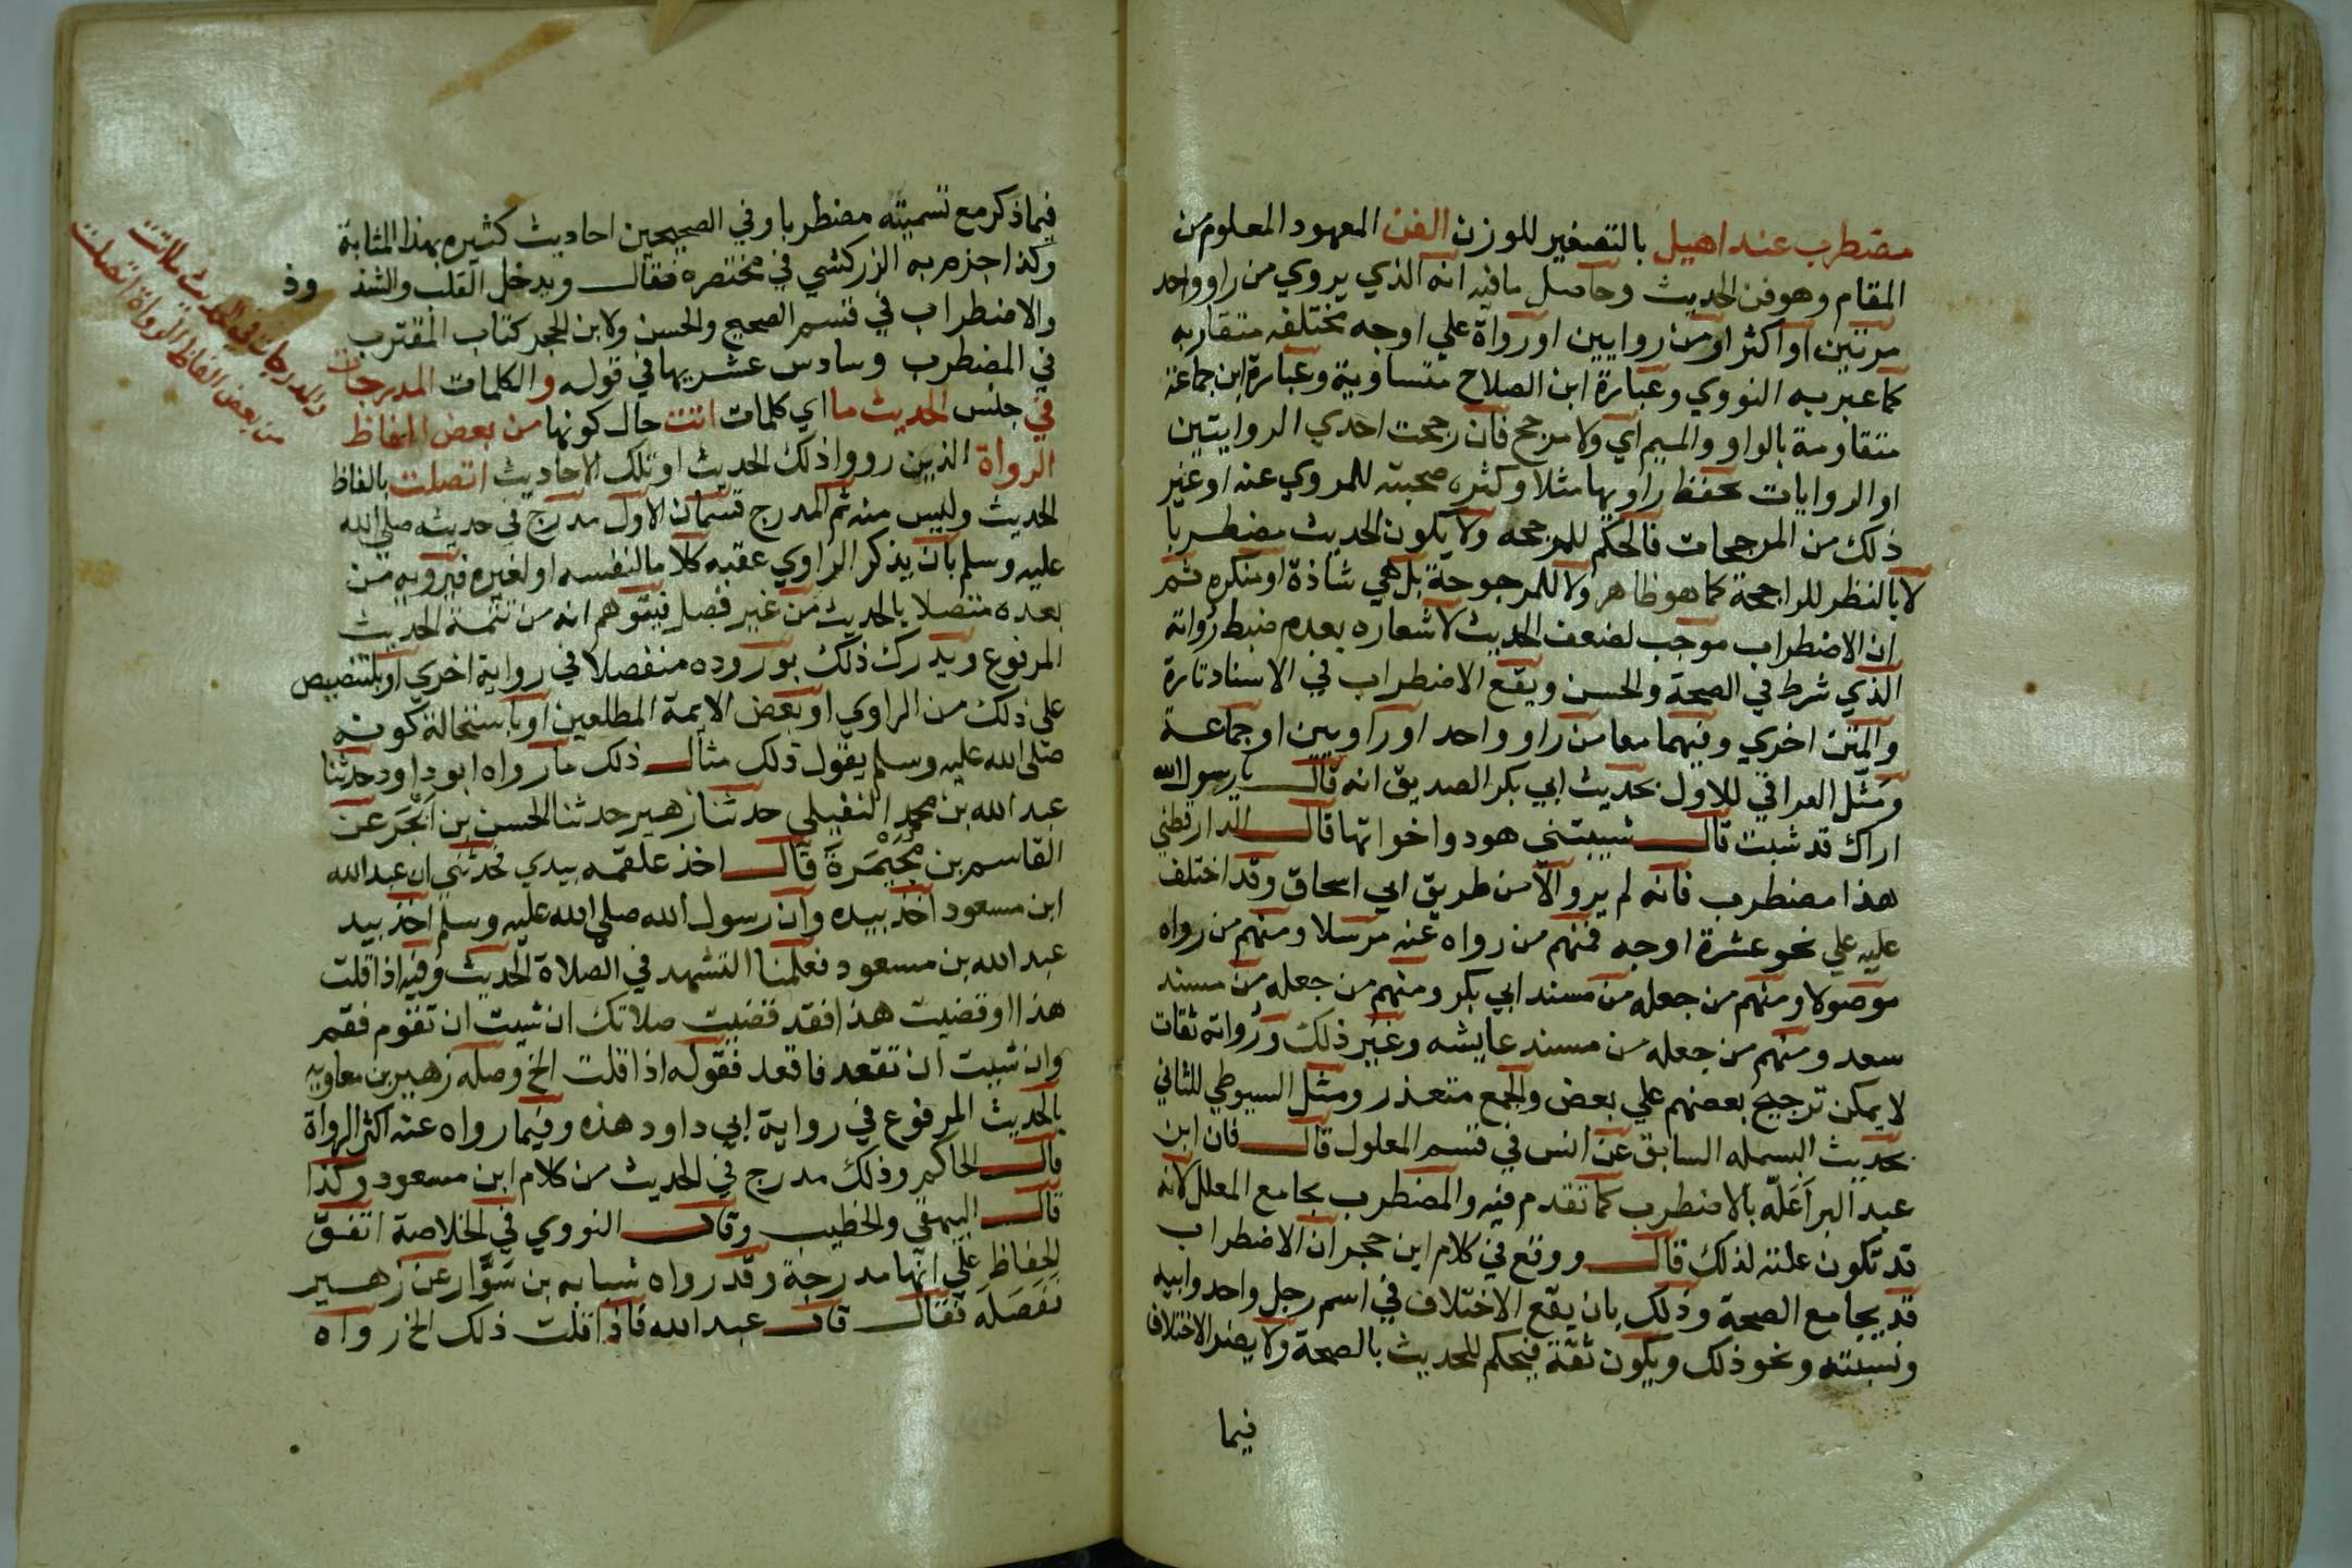 مضطرب عند اهيل بالتصغير للوزن الفن المعهود المعلوم من
المقام وهو فن الحديث وحاصل ما فيه انه الذي يروي من راو واحد
مرتين او اكثر او من روايين او رواة علي اوجه مختلفه متقاربه
كما عبر به النووي وعبارة ابن الصلاح متساوية وعبارة ابن جماعة
متقاومة بالواو والميم اي ولا مرجح فان رجحت احدي الروايتين
او الروايات بحفظ راويها مثلا وكثرة صحبته للمروي عنه او غير
ذلك من المرجحات فالحكم للمرجحه ولا يكون الحديث مضطربا
لا بالنظر للراجحة كما هو ظاهر ولا للمرجوحة بل هي شاذة او منكره ثم
ان الاضطراب موجب لضعف الحديث لاشعاره بعدم ضبط رواته
الذي شرط في الصحة والحسن ويقع الاضطراب في الاسناد تارة
والمتن اخري وفيهما معا من راو واحد او راويين او جماعة
ومثل العراقي للاول بحديث ابي بكر الصديق انه قال يا رسول الله
اراك قد شبت قال شيبتني هود واخواتها قال الدارقطني
هذا مضطرب فانه لم يرو الا من طريق ابي اسحاق وقد اختلف
عليه علي نحو عشرة اوجه فمنهم من رواه عنه مرسلا ومنهم من رواه
موصولا ومنهم من جعله من مسند ابي بكر ومنهم من جعله من مسند
سعد ومنهم من جعله من مسند عايشه وغير ذلك ورواته ثقات
لا يمكن ترجيح بعضهم علي بعض والجمع متعذر ومثل السيوطي للثاني
بحديث البسمله السابق عن انس في قسم المعلول قال فان ابن
عبد البر اعله بالاضطرب كما تقدم فيه والمضطرب يجامع المعلل لانه
قد تكون علته لذلك قال ووقع في كلام ابن حجر ان الاضطراب
قد يجامع الصحة وذلك بان يقع الاختلاف في اسم رجل واحد وابيه
ونسبته ونحو ذلك ويكون ثقة فيحكم للحديث بالصحة ولا يضر الاختلاف
فيما
فيما ذكر مع تسميته مضطربا وفي الصحيحين احاديث كثيره بهذا المثابة
وكذا جزم به الزركشي في مختصره فقال ويدخل القلب والشذ وذ
والاضطراب في قسم الصحيح والحسن ولابن الحجر كتاب المقترب
في المضطرب وسادس عشريها في قوله والكلمات المدرجات
في جنس الحديث ما اي كلمات اتت حال كونها من بعض الفاظ
الرواة الذين رووا ذلك الحديث او تلك الاحاديث اتصلت بالفاظ
الحديث وليس منه ثم المدرج قسمان الاول مدرج في حديثه صلي الله
عليه وسلم بان يذكر الراوي عقبه كلاما لنفسه او لغيره فيرويه من
بعده متصلا بالحديث من غير فصل فيتوهم انه من تتمة الحديث
المرفوع ويدرك ذلك بوروده منفصلا في رواية اخري او بلتنصيص
علي ذلك من الراوي او بعض الايمة المطلعين او باستحالة كونه
صلي الله عليه وسلم يقول ذلك مثال ذلك ما رواه ابو داود حدثنا
عبد الله بن محمد النفيلي حدثنا زهير حدثنا الحسن بن ابجر عن
القاسم بن مخيمرة قال اخذ علقمه بيدي فحدثني ان عبد الله
ابن مسعود اخذ بيده وان رسول الله صلي الله عليه وسلم اخذ بيد
عبد الله بن مسعود فعلمنا التشهد في الصلاة الحديث وفيه اذا قلت
هذا او قضيت هذا فقد قضيت صلاتك ان شيت ان تقوم فقم
وان شيت ان تقعد فاقعد فقوله اذا قلت الخ وصله زهير بن معاويه
بالحديث المرفوع في رواية ابي داود هذه وفيما رواه عنه اكثر الرواة
قال الحاكم وذلك مدرج في الحديث من كلام ابن مسعود وكذا
قال البيهقي والخطيب وقال النووي في الخلاصة اتفق
الحفاظ علي انها مدرجة وقد رواه شبابه بن سوار عن زهير
ففصله فقال قال عبد الله فاذا قلت ذلك الخ رواه
والمدرجات في الحديث ما اتت
من بعض الفاظ الرواة اتصلت